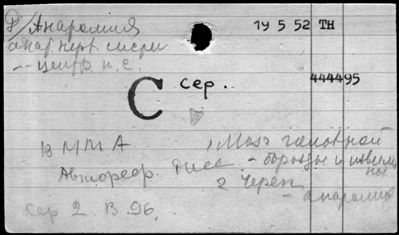 Р/Анатомия 19 5 52 TH
анат. нерв. сист
-- центр. н.с.
С сер. 444495
В ММА 1 Мозг головной
Автореф. дисс - борозды и извилины
2 Череп
- анатомия
Сер 2 В 96.